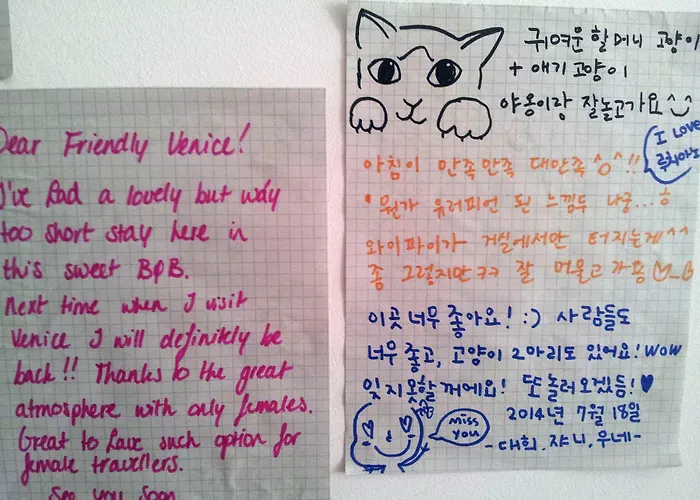 Dear Friendly Venice!
I've had a lovely but way
too short stay here in
this sweet B&B.
Next time when I visit
Venice I will definitely be
back!! Thanks to the great
atmosphere with only females.
Great to have such option for
female travellers.
See you soon
귀여운 할머니 고양이
+ 애기 고양이
야옹이랑 잘놀고가요^^
I LOVE
루치아노
아침이 만족만족 대만족^o^!!
• 뭔가 유러피언 된 느낌두 나궁...ㅎ
와이파이가 거실에서만 터지는게^^
좀 그렇지만ㅋㅋ 잘 머물고 가용
이곳 너무 좋아요! :) 사람들도
너무 좋고, 고양이 2마리도 있어요! WOW
잊지 못할 꺼에요! 또 놀러오겠듬!♥
2014년 7월 18일
miss
you
-대희.쟈니.우네-